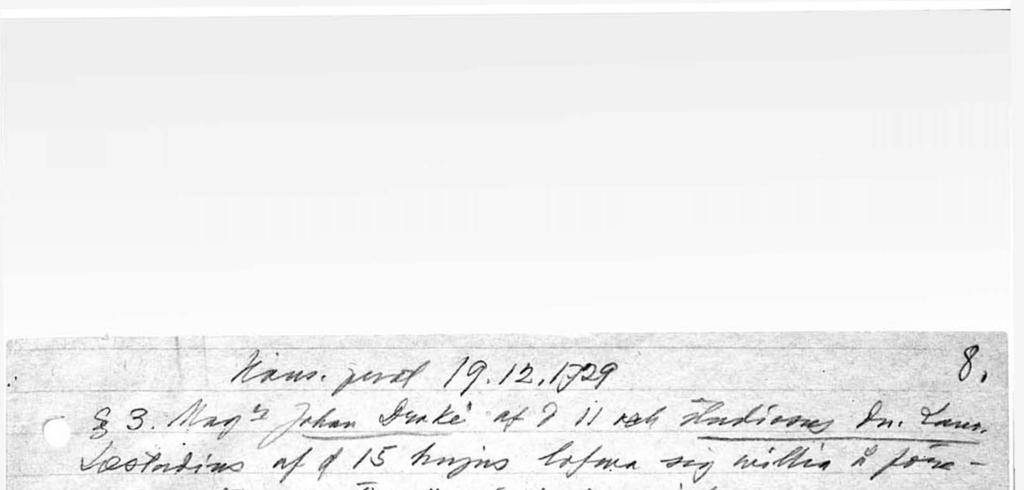 Kons. prot 19.12.1729 8.
§ 3. Mag:r Johan Drake af d 11 och Studiosus Dn. Laur.
Læstadius af d 15 hujus lofwa sig willia å före-